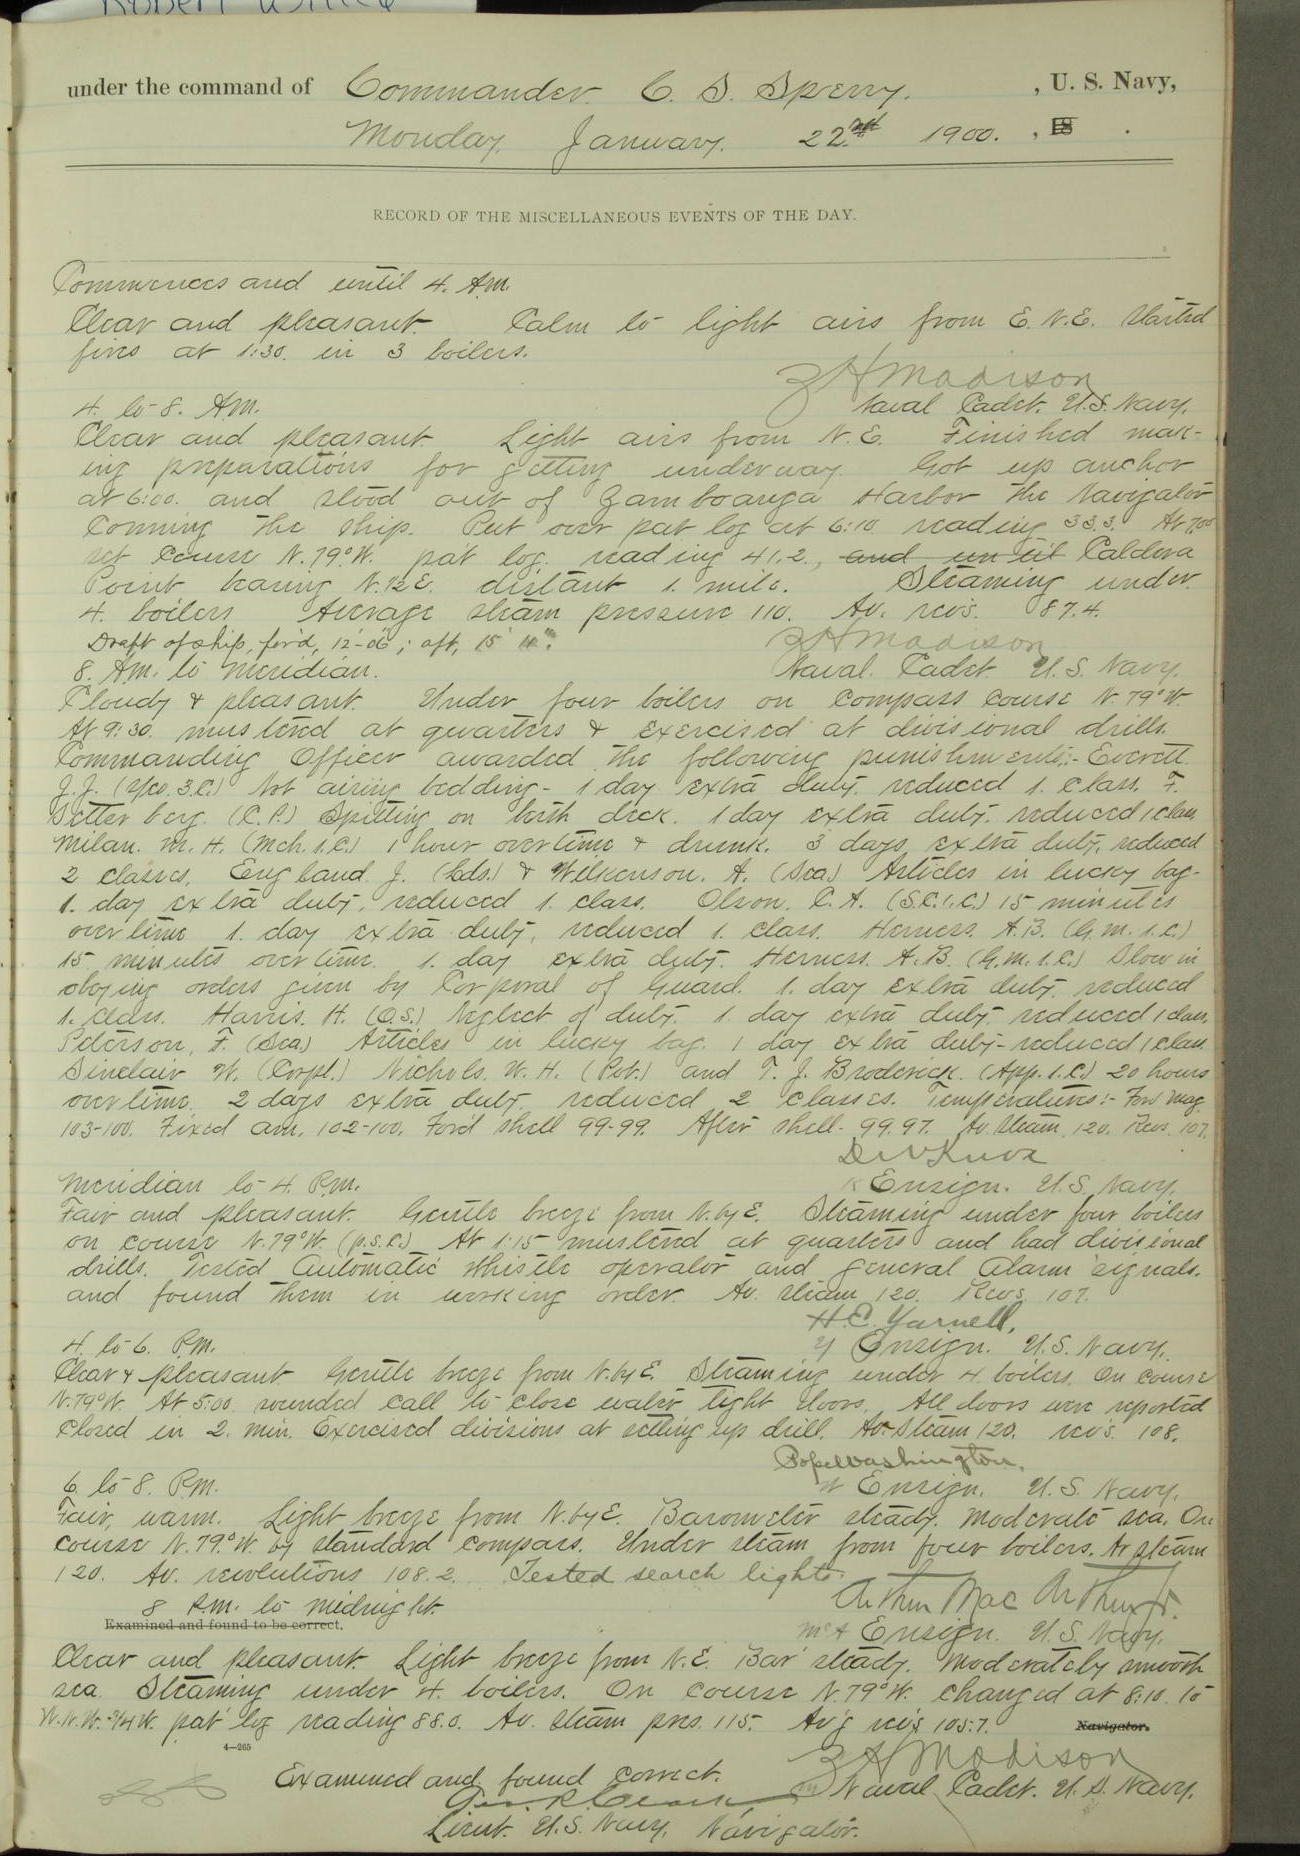 under the command of Commander C. S. Sperry, U. S. Navy,
Monday January 22nd 1900. , 18 .
RECORD OF THE MISCELLANEOUS EVENTS OF THE DAY.
Commences and until 4. A.M.
Clear and pleasant. Calm to light airs from E.N.E. Started
fires at 1:30. in 3 boilers.
Z H Madison
Naval Cadet. U.S. Navy.
4. to 8. A.M.
Clear and pleasant. Light airs from N.E. Finished mak-
ing preparations for getting underway. Got up anchor
at 6:00. and stood out of Zamboanga Harbor the Navigator
conning the ship. Put over pat log at 6:10 reading 33.3. At 7.00
set course N.79°W. pat log. reading 41.2., and until Caldera
Point bearing N.12E. distant 1. mile. Steaming under
4. boilers Average steam pressure 110. Av. revs. 87.4.
Draft of ship, for'd, 12'-06"; aft, 15' 11".
Z H Madison
Naval Cadet U.S. Navy.
8. A.M. to Meridian.
Cloudy & pleasant. Under four boilers on compass course N. 79° W.
At 9:30. mustered at quarters & exercised at divisional drills.
Commanding Officer awarded the following punishments:- Everett
J.J. (Yeo. 3.C.) Not airing bedding - 1 day extra duty. reduced 1. class. F.
Setterberg. (C.P.) Spitting on birth deck. 1 day extra duty. reduced 1 class.
Milan. M. H. (Mch. 1.C.) 1 hour overtime & drunk. 3 days extra duty, reduced
2 classes. England J. (Lds.) & Wilkenson. A. (Sea.) Articles in lucky bag-
1. day extra duty, reduced 1. class. Olson. C. A. (S.C.1.C.) 15 minutes
overtime 1. day extra duty, reduced 1. class. Herness. A.B. (G.M. 1.C.)
15 minutes overtime. 1. day extra duty. Herness. A.B. (G.M. 1.C.) Slow in
obeying orders given by Corporal of Guard. 1. day extra duty. reduced
1. class. Harris. H. (O.S.) Neglect of duty. 1. day extra duty. reduced 1 class.
Peterson, F. (Sea.) Articles in lucky bag. 1 day extra duty- reduced 1 class
Sinclair W. (Corpl.) Nichols. W. H. (Pvt.) and T. J. Broderick. (App. 1.C.) 20 hours
overtime. 2 days extra duty. reduced 2 classes. Temperatures:- For'd Mag.
103-100. Fixed am. 102-100. For'd shell 99-99. After shell- 99.97. Av. Steam 120. Revs. 107.
D W Knox
Ensign. U.S. Navy.
Meridian to 4. P.M.
Fair and pleasant. Gentle breeze from N.byE. Steaming under four boilers
on course N.79°W. (p.s.c.) At 1:15 mustered at quarters and had divisional
drills. Tested Automatic whistle operator and general Alarm signals.
and found them in working order. Av. steam 120. Revs. 107.
H.E. Yarnell,
Ensign. U.S. Navy.
4. to 6. P.M.
Clear & pleasant Gentle breeze from N.byE. Steaming under 4. boilers. On course
N.79°W. At 5:00. sounded call to close water tight doors. All doors were reported
closed in 2. min. Exercised divisions at setting up drill. Av. Steam 120. revs. 108.
Pope Washington.
Ensign. U.S. Navy.
6. to 8. P.M.
Fair, warm. Light breeze from N.byE. Barometer steady. Moderate sea. On
course N.79°W. by standard compass. Under steam from four boilers. Av steam
120. Av. revolutions 108.2. Tested search lights.
Arthur MacArthur Jr.
McA Ensign. U.S. Navy.
8 P.M. to midnight.
Examined and found to be correct.
Clear and pleasant. Light breeze from N.E. Bar steady. Moderately smooth
sea. Steaming under 4. boilers. On course N.79°W. changed at 8:10. to
W.N.W. 3/4 W. pat log reading 88.0. Av. steam pres. 115. Av'g revs 105.7.
Navigator.
4—265
Z H Madison
Naval Cadet. U.S. Navy.
Examined and found correct.
Geo. R. Clark
Lieut. U.S. Navy, Navigator.